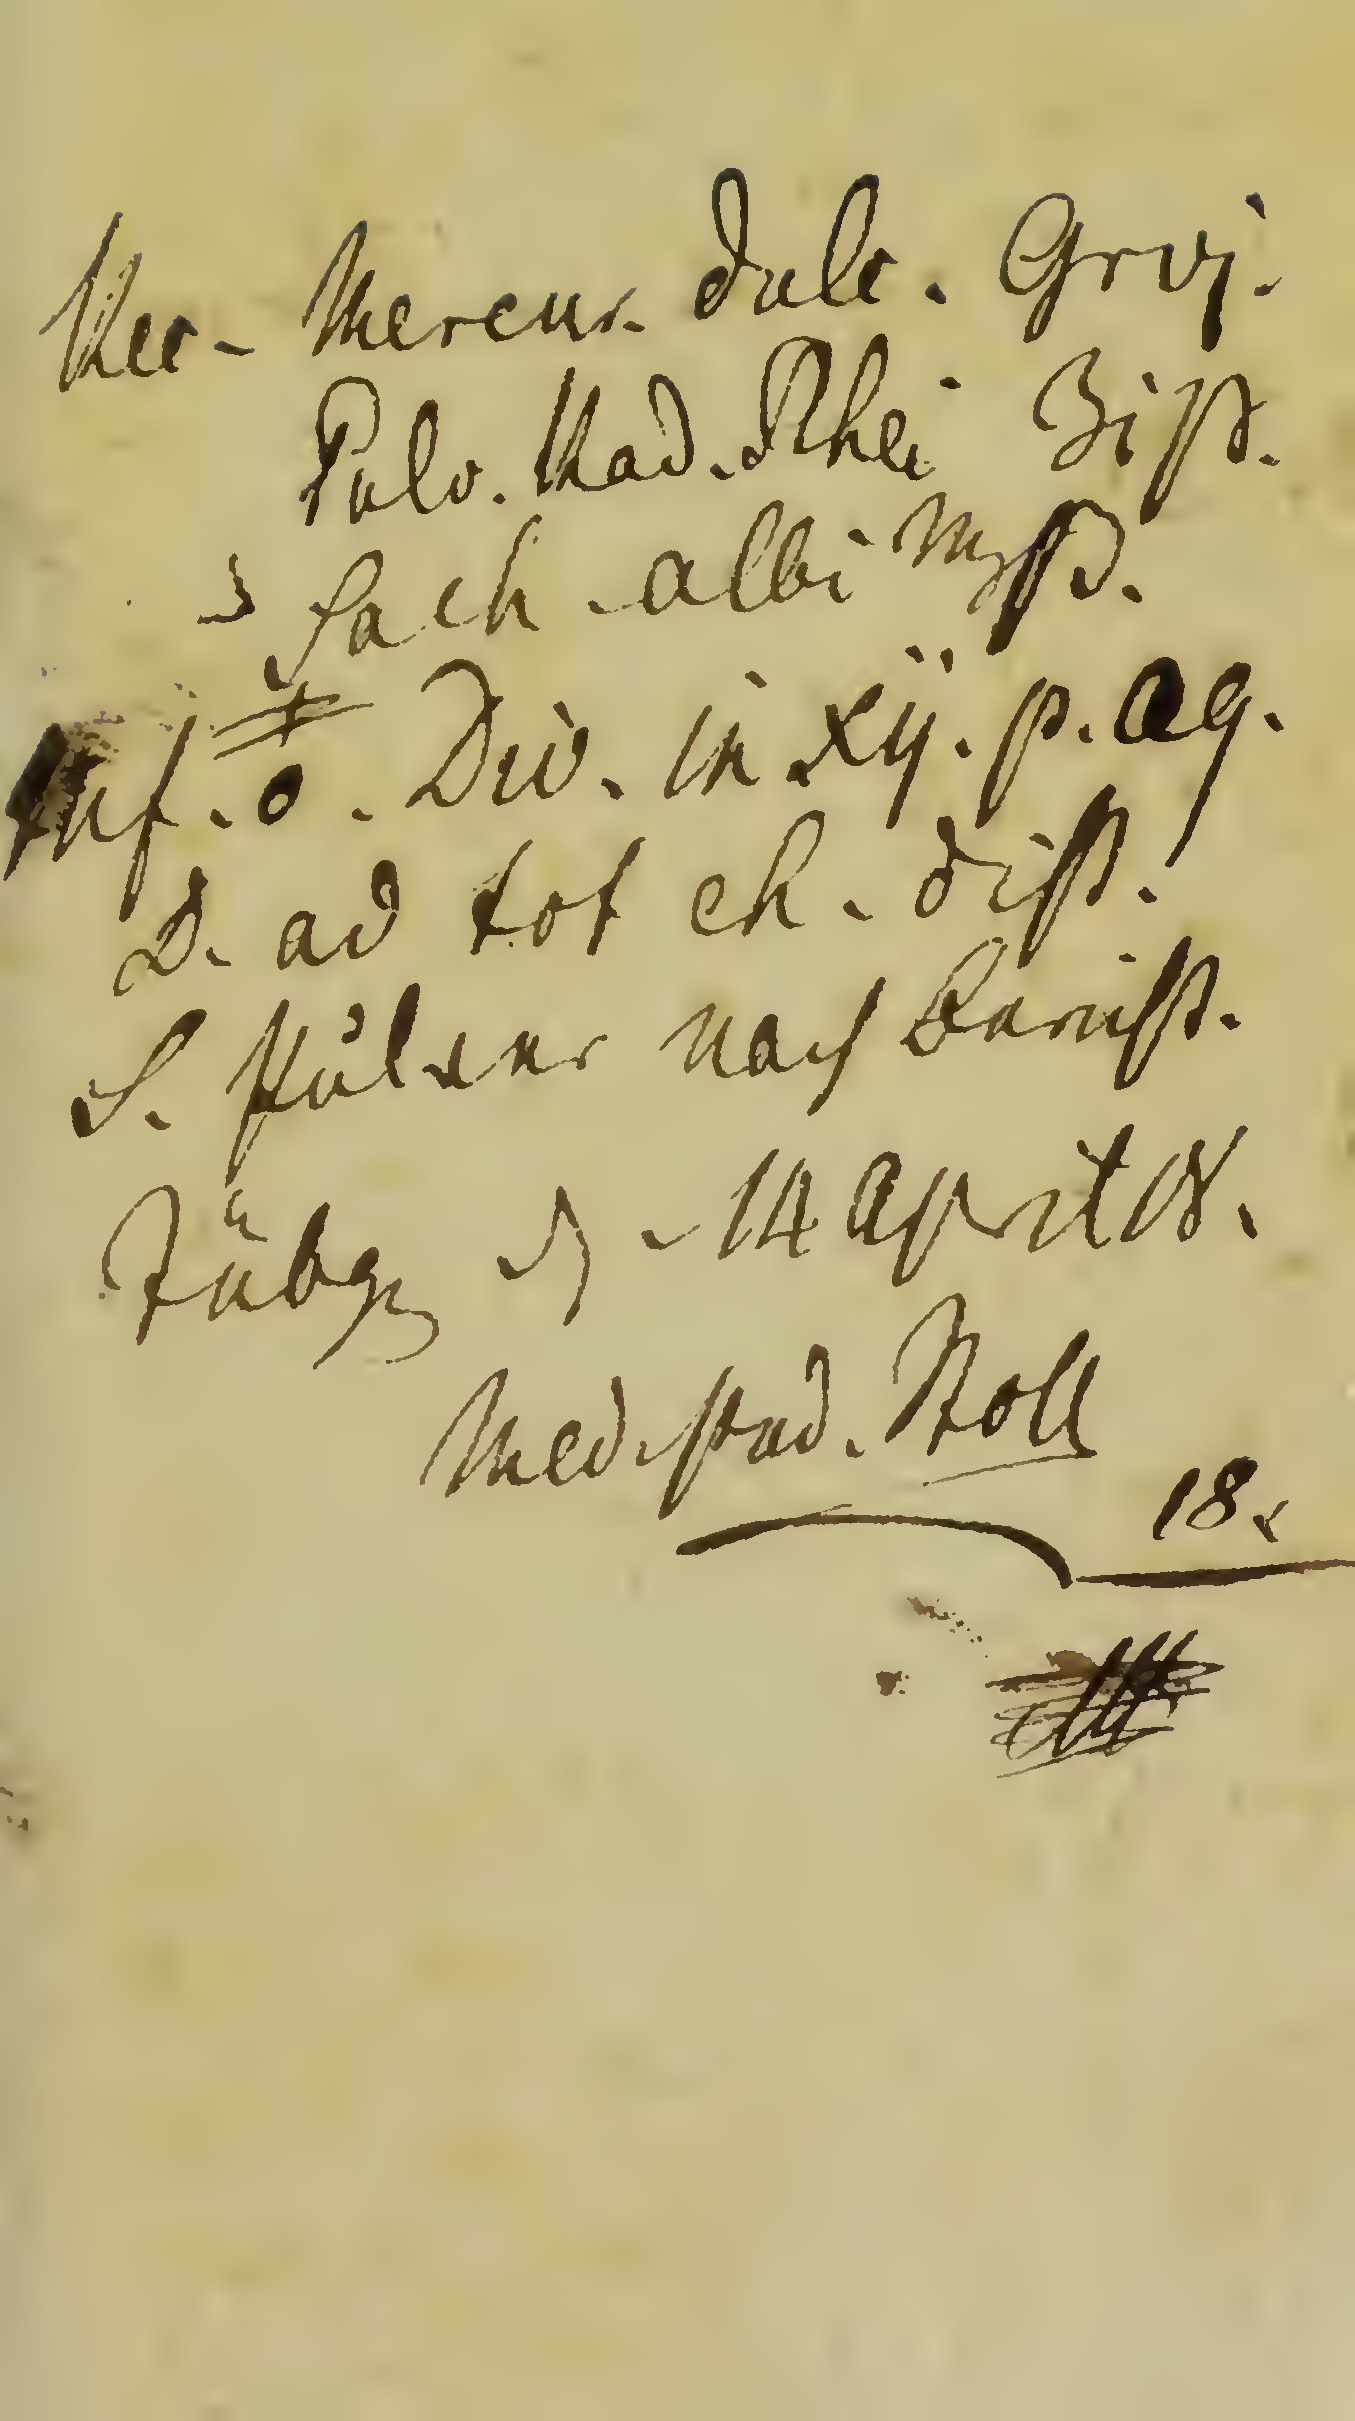 Rec. Mercur. dulc. Grvj.
Pulv. Rad. Rhei ℈iß.
Sach. albi ʒß.
Mf. Div. in xij. p. aeq.
D. ad tot ch. dist.
S. Pulver nach Bericht.
Tübg d. 14 April 18.
Med. stud. Stoll
18